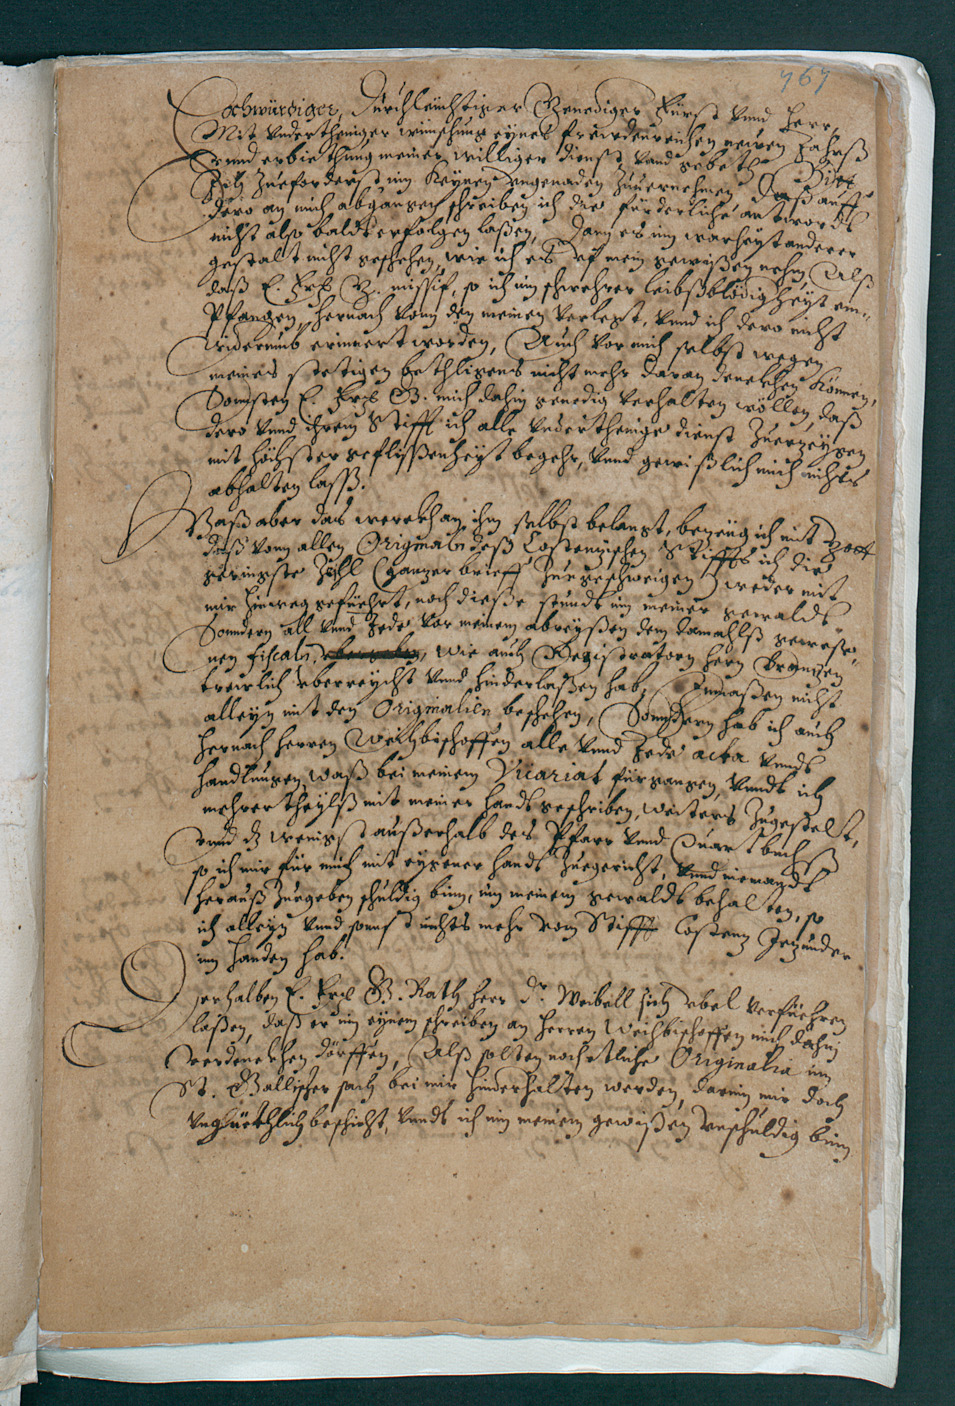 767
Hochwürdiger, Durchleüchtiger Genediger Fürst vnnd Herr,
Mit vndertheniger wünschung eynes freüdenreichen neüwen Jahrß
vnnd erbiethung meiner williger dienst vnnd gebeth. Bitt
Ich zueforderst inn keynen vngenaden zuuernehmen, daß auff
dero an mich abgangen schreiben ich die fürderliche antwordt
nicht also baldt erfolgen laßen, dann es inn warheyt anderer
gestalt nicht geschehen, wie ich es vf mein gewißen nehm, Alß
daß E. Frl. G. missif, so ich inn schwehrer leibßblödigkheyt em-
pfangen, hernach vonn den meinen verlegt, vnnd ich dero nicht
widerumb erinnert worden, Auch vor mich selbst wegen
meines stetigen bethligens nicht mehr daran denckhen können,
Sonsten E. Frl. G. mich dahin genedig verhalten wöllen, daß
dero vnnd ihrem Stifft ich alle vnderthenige dienst zuerzeygen
mit höchster geflißenheyt begehr, vnnd gewißlich mich nichts
abhalten lasß.
Waß aber das werckh an ihm selbst belangt, bezeüg ich mit Gott
daß vonn allen Originaln deß Costenzischen Stiffts ich die
geringste Zahl (ganzer brieff zuegeschweigen) weder mit
mir hinweg gefüehrt, noch dieße stundt inn meiner gewaldt,
Sonndern all vnnd Jede vor meinem abreyßen dem damahlß gewese-
nen fiscaln, wie auch Registratorn hern
trewlich vberreycht vnnd hinderlaßen hab, Inmaßen nicht
alleyn mit den Originalien beschehen, Sonndern hab ich auch
hernach herren Weyhbischoffen alle vnnd Jede acta vnndt
handlungen, waß bei meinem Vicariat fürgangen, vnndt ich
mehrer theylß mit meiner handt geschriben, weiters zugestelt,
vnnd wenigst außerhalb des Pfarr vnnd Quart buchß
so ich mir für mich mit eygener handt zuegericht, vnnd niemandt
herauß zuegeben schuldig binn, inn meinem gewaldt behalten, so
ich alleyn vnnd sonnst nichts mehr vom Stifft Costenz Jezunder
inn handen hab.
Derhalben E. Frl. G. Rath herr Dr. Weibell sich vbel verfüehren
laßen, daß er inn eynem schreiben an herren Weihbischoffen mich dahin
verdenckhen dörffen, Alß solten nochetliche Originalia inn
St. Gallischer sach bei mir hinderhalten werden, darinn mir doch
vngüethlich beschicht, vnndt ich inn meinem gewißen vnschuldig binn